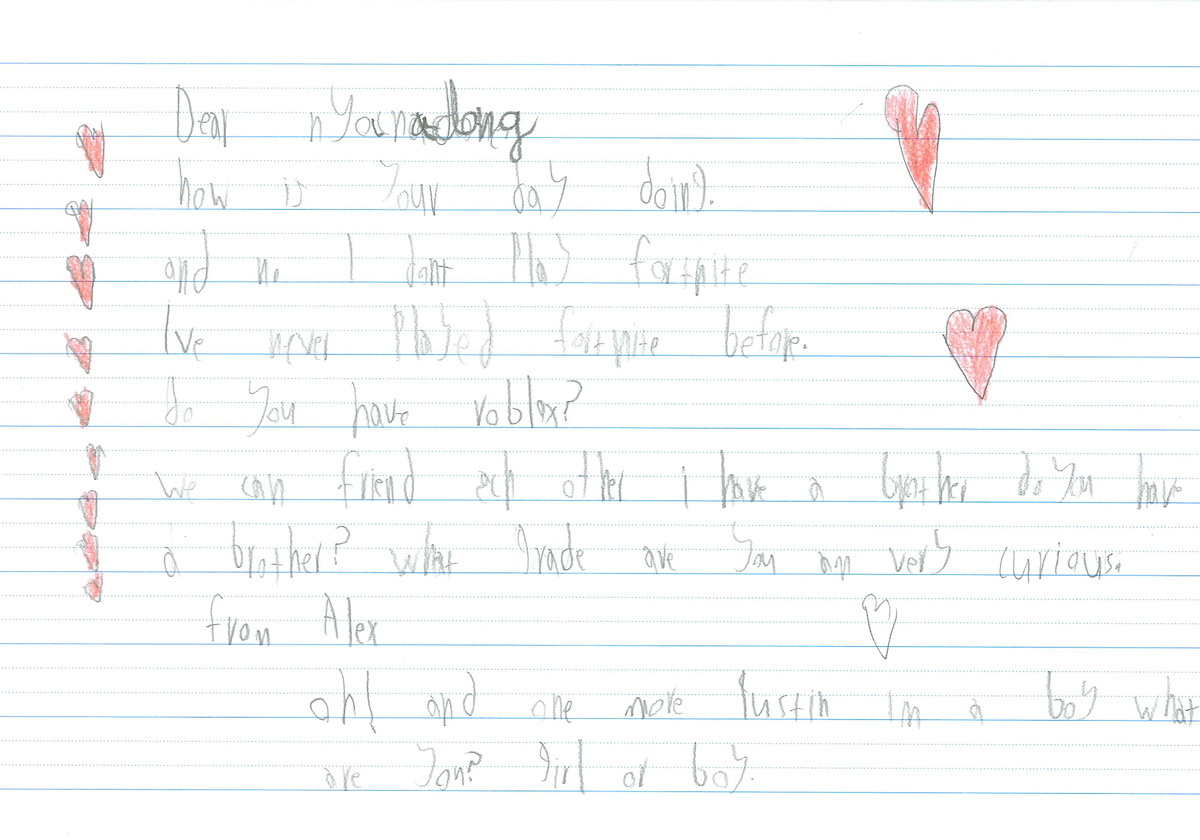 Dear nYournadong
how is Your day doing.
and no I dont Play fortnite
Ive never Played fortnite before.
do You have roblox?
we can friend ech other i have a brother do You have
a brother? what grade are You am very curious.
from Alex
oh! and one more Qustin im a boy what
are You? girl or boy.